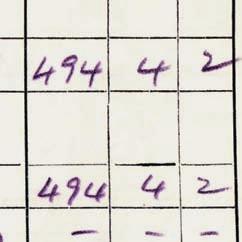 494 4 2
494 4 2
- - -